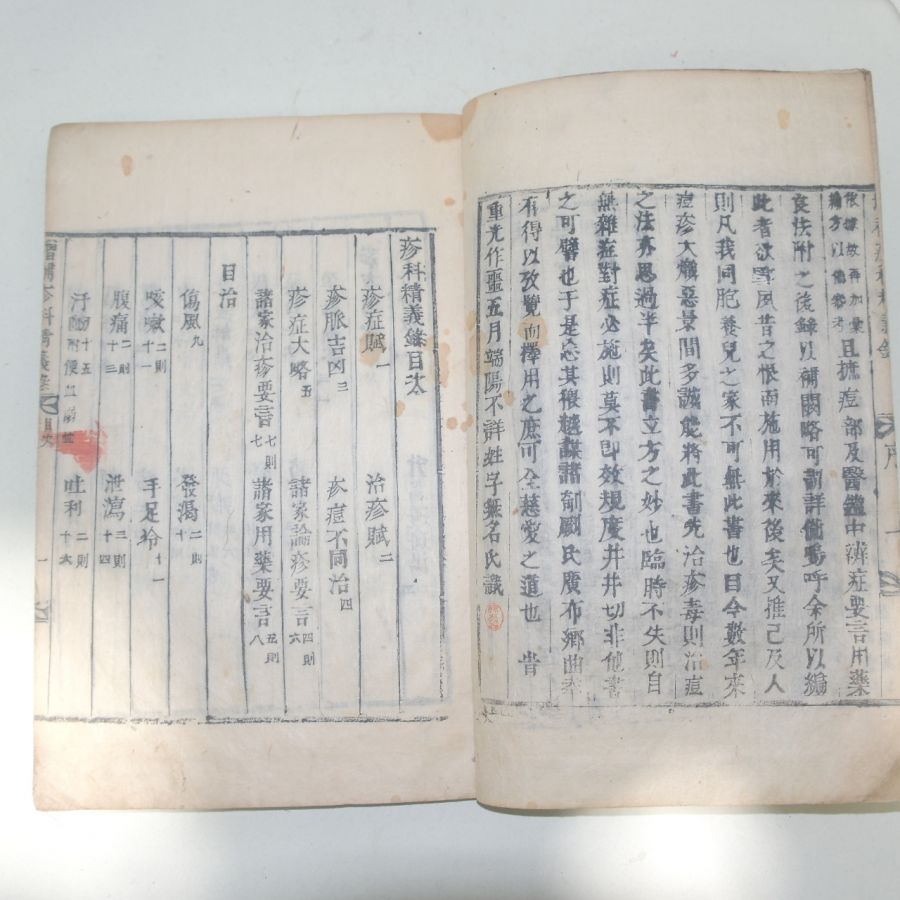 且摭痘部及醫鑑中辨症要言用藥
良法附之後錄以補闕略可謂詳備嗚呼余所以編
此者欲雪風昔之恨而施用於來後矣又推己及人
則凡我同胞養兒之家不可無此書也目今數年來
痘疹大熾惡景間多誠能將此書先治疹毒則治痘
之法亦思過半矣此書立方之妙也臨時不失則自
無雜症對症必施則莫不即效規度井井切非他書
之可譬也于是忘其猥越謀諸剞劂氏廣布鄉曲
有得以攷覽而擇用之庶可全慈愛之道也 昔
重光作噩五月端陽不詳姓字無名氏識
疹科精義錄目次
疹症賦 一 治疹賦 二
疹脈吉凶 三 疹痘不同治 四
疹症大略 五 諸家論疹要言 四則 六
諸家治疹要言 七則 七 諸家用藥要言 五則 八
目治
傷風 九 發渴 二則 十
咳嗽 二則 十一 手足冷 十一
腹痛 十三 泄瀉 三則 十四
汗 十五 吐利 二則 十六
增補疹科精義錄 目次 一